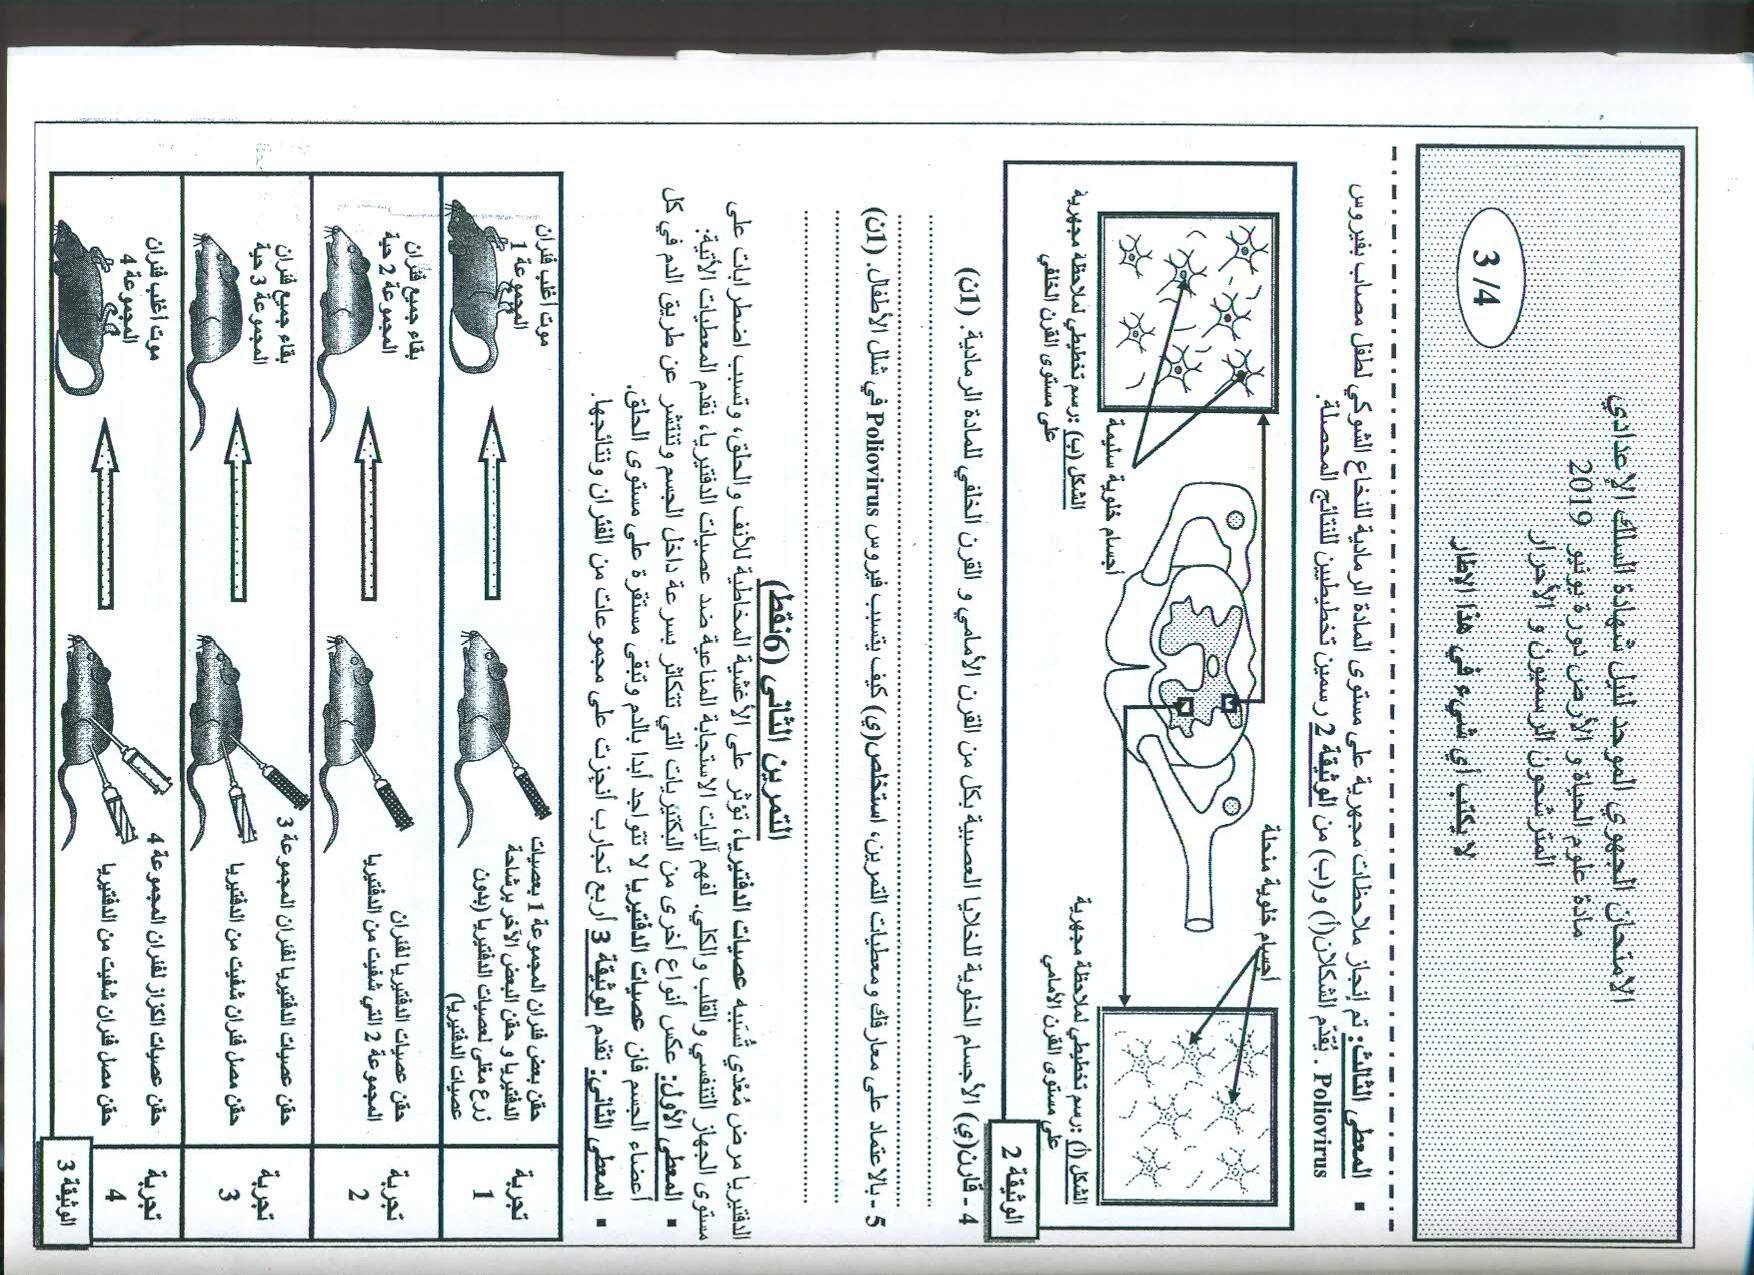 الامتحان الجهوي الموحد لنيل شهادة السلك الإعدادي
مادة علوم الحياة و الأرض دورة يونيو 2019
المترشحون الرسميون و الأحرار
لا يكتب أي شيء في هذا الإطار
3/4
▪ المعطى الثالث: تم إنجاز ملاحظات مجهرية على مستوى المادة الرمادية للنخاع الشوكي لطفل مصاب بفيروس
Poliovirus . يُقدّم الشكلان (أ) و(ب) من الوثيقة 2 رسمين تخطيطيين للنتائج المحصلة.
أجسام خلوية منحلة
أجسام خلوية سليمة
الشكل (أ) :رسم تخطيطي لملاحظة مجهرية
على مستوى القرن الأمامي
الشكل (ب) :رسم تخطيطي لملاحظة مجهرية
على مستوى القرن الخلفي
الوثيقة 2
4 - قارن(ي) الأجسام الخلوية للخلايا العصبية بكل من القرن الأمامي و القرن الخلفي للمادة الرمادية. (1ن)
5 - بالاعتماد على معارفك ومعطيات التمرين، استخلص(ي) كيف يتسبب فيروس Poliovirus في شلل الأطفال. (1ن)
التمرين الثاني (6نقط)
الدفتيريا مرض مُعْدي تُسَبِبه عصيات الدفتيريا، تؤثر على الأغشية المخاطية للأنف والحلق، وتسبب اضطرابات على
مستوى الجهاز التنفسي والقلب والكلي. لفهم آليات الاستجابة المناعية ضد عصيات الدفتيريا، نقدم المعطيات الآتية:
▪ المعطى الأول: عكس أنواع أخرى من البكتيريات التي تتكاثر بسرعة داخل الجسم وتنتشر عن طريق الدم في كل
أعضاء الجسم فان عصيات الدفتيريا لا تتواجد أبدا بالدم وتبقى مستقرة على مستوى الحلق.
▪ المعطى الثاني: تقدم الوثيقة 3 أربع تجارب أنجزت على مجموعات من الفئران ونتائجها.
تجربة
1
حقن بعض فئران المجموعة 1 بعصيات
الدفتيريا و حقن البعض الآخر برشاحة
زرع مغلى لعصيات الدفتيريا (بدون
عصيات الدفتيريا)
موت أغلب فئران
المجموعة 1
تجربة
2
حقن عصيات الدفتيريا لفئران
المجموعة 2 التي شفيت من الدفتيريا
بقاء جميع فئران
المجموعة 2 حية
تجربة
3
حقن عصيات الدفتيريا لفئران المجموعة 3
حقن مصل فئران شفيت من الدفتيريا
بقاء جميع فئران
المجموعة 3 حية
تجربة
4
حقن عصيات الكزاز لفئران المجموعة 4
حقن مصل فئران شفيت من الدفتيريا
موت أغلب فئران
المجموعة 4
الوثيقة 3